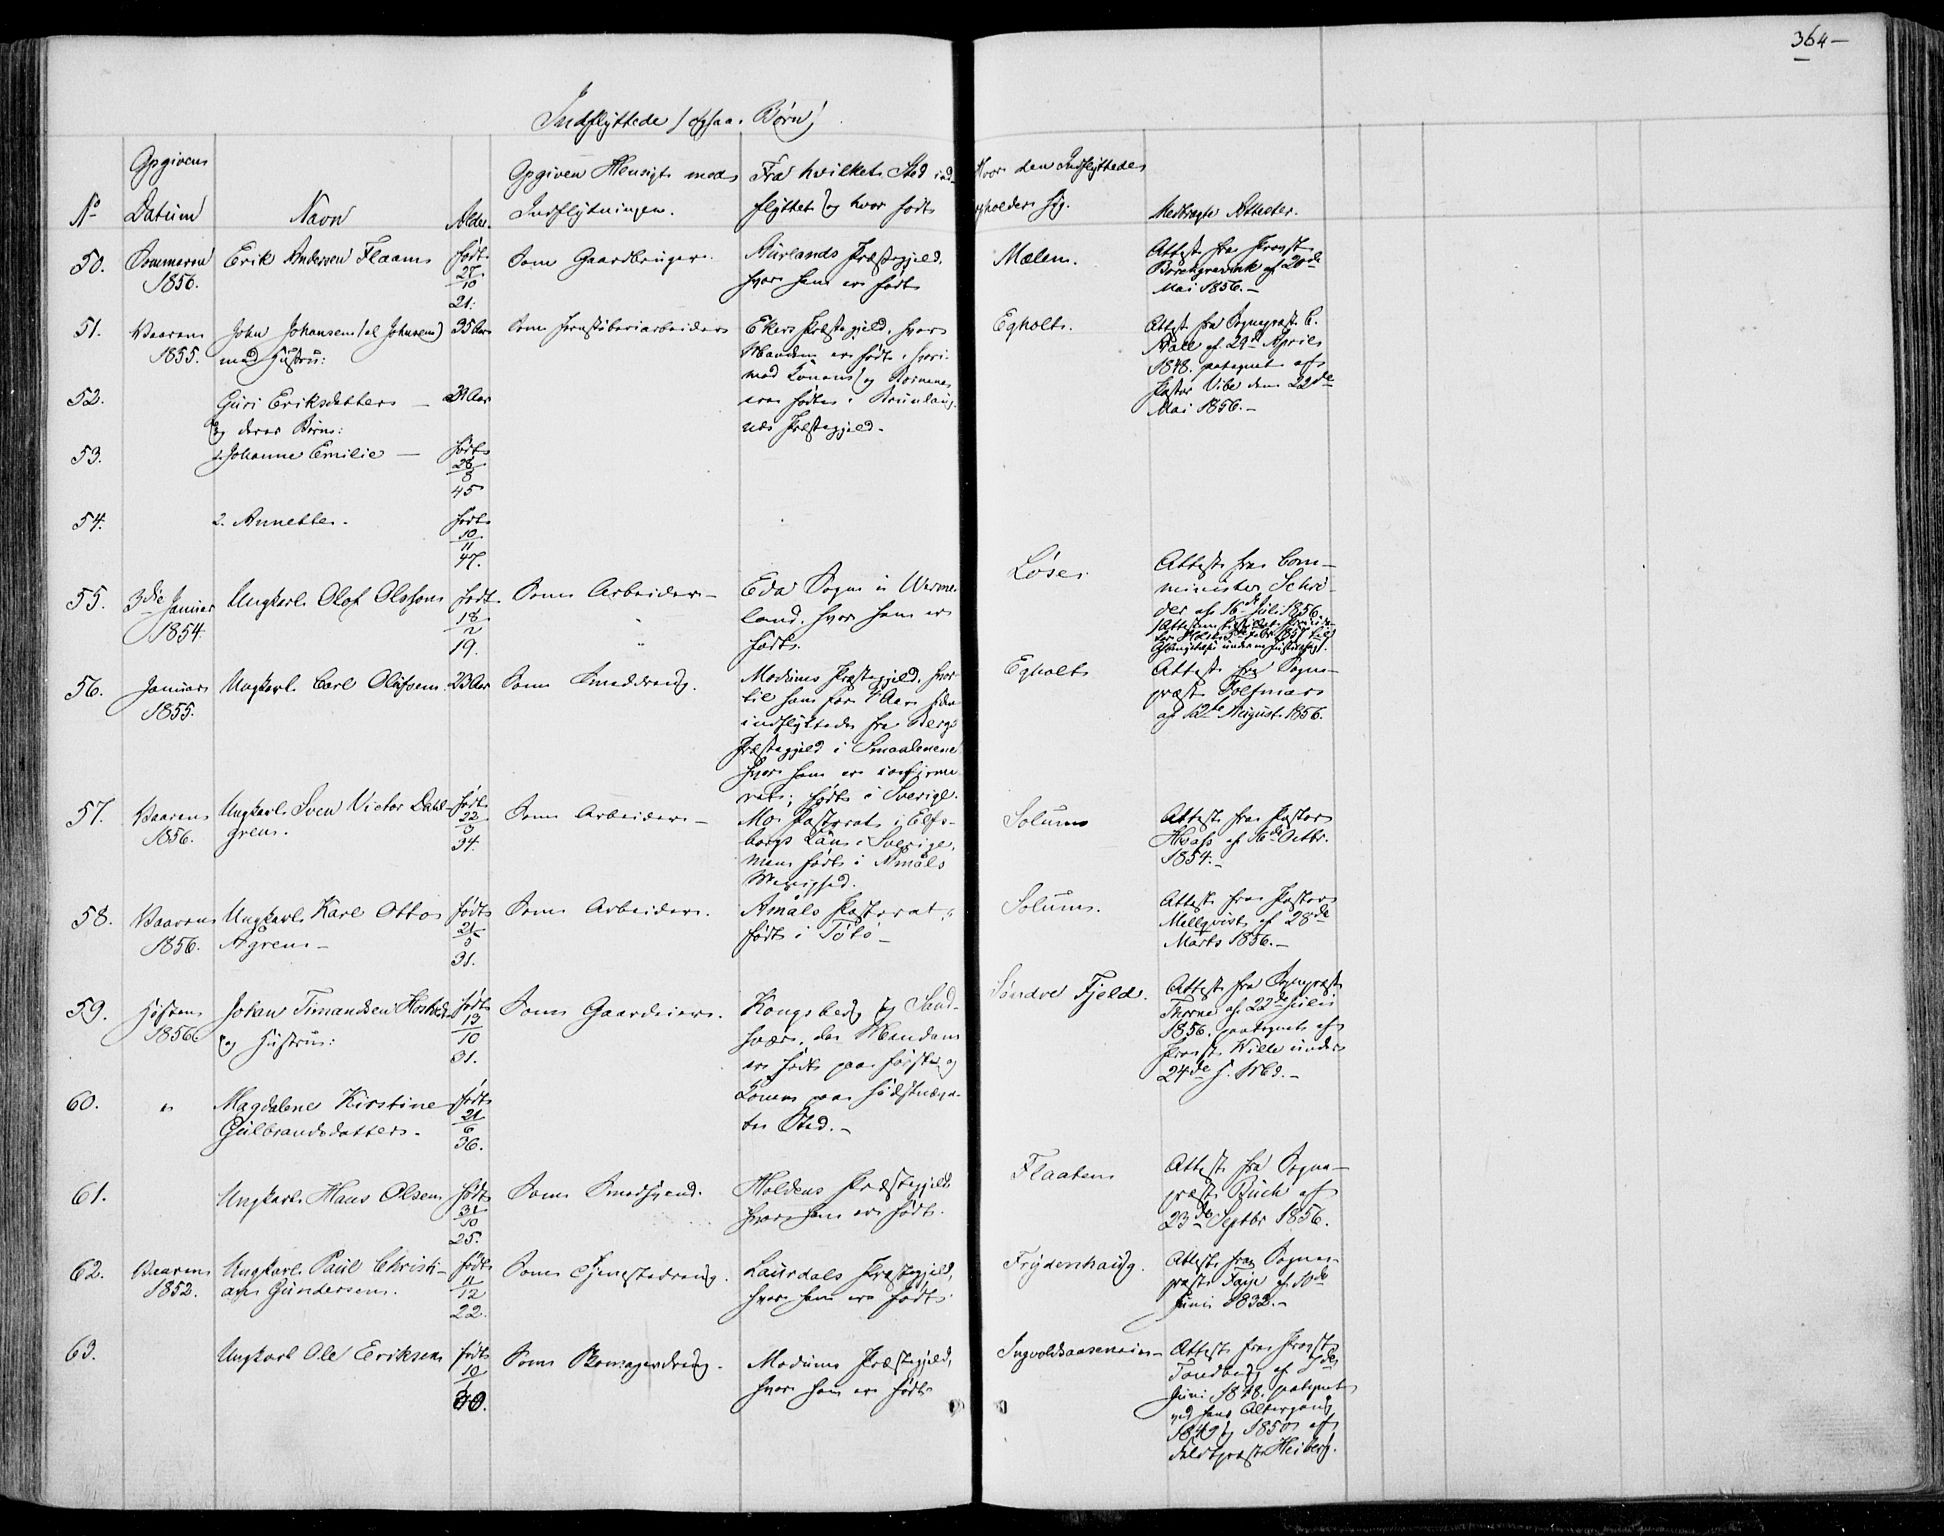 364 —
Indflyttede (ogsaa Børn)
No
Opgiven
Datum
Navn
Alder.
Opgiven Hensigt med
Indflytningen.
Fra hvilket Sted ind-
flyttet og hvor født
Hvor den Indflyttede
opholder sig.
Medbragte Attester.
50.
Sommeren
1856.
Erik Andersen Flaam
født
27/10
21.
Som Gaardbruger.
Aurlands Præstegjeld,
hvor han er født
Mælen.
Attest fra Provst
af 20de
Mai 1856. —
51.
Vaaren
1855.
John Johansen (el Johnsen)
med Hustru:
35 Aar
Som Jernstøberiarbeider
Ekers Præstegjeld, hvor
Manden er født, hvori-
mod Konen og Børnene
ere fødte i Brunlaug-
næs Præstegjeld. —
Egholt.
Attest fra Sognepræst C.
af 29de April
1848. paategnet af
Pastor Vibe den 22de
Mai 1856. —
52.
Guri Eriksdatter —
og deres Børn:
Aar
53.
1. Johanne Emilie —
født
28/8
45
54.
2. Annette.
født
10/11
47.
55.
3die Januar
1854.
Ungkarl Olof Olsson
født
18/2
19.
Som Arbeider —
Eda Sogn i Werme-
land, hvor han er
født.
Løse.
Attest fra Com-
minister Schrö-
der af 16de Juli 1856.
56.
Januar
1855.
Ungkarl Carl Olufsen.
23 Aar
Som Smeddreng.
Modums Præstegjeld, hvor-
til han for 1 Aar siden
indflyttede fra Bergs
Præstegjeld i Smaalenene
hvor han er confirme-
ret; født i Sverige.
Egholt
Attest fra Sogne-
præst
af 12te August 1856.
57.
Vaaren
1856.
Ungkarl Sven Victor Dahl-
gren.
født
22/3
34.
Som Arbeider —
Mo Pastorat i Elfs-
borgs Län i Sverige,
men født i Åmåls
Solum
Attest fra Pastor
af 16de Octbr.
1854. —
58.
Vaaren
1856.
Ungkarl Karl Otto
Ågren —
født
21/5
31.
Som Arbeider.
Åmåls Pastorat,
født i Tösö —
Solum.
Attest fra Pastor
Mellqvist af 28de
Marts 1856. —
59.
Høsten
1856
Johan Timandsen
og Hustru:
født
13/10
31.
Som Gaardeier.
Kongsberg og Sand-
svær, da Manden
er født paa første og
Konen paa sidstnævn-
te Sted. —
Søndre Fjeld.
Attest fra Sognepræst
Thorne af 22de Juli
1856. paategnet af
Provst Wille under
24de s. Md. —
60.
"
Magdalene Kirstine
Gulbrandsdatter. —
født
21/6
36.
61.
Ungkarl Hans Olsen
født
31/10
25.
Som Smedsvend.
Holdens Præstegjeld
hvor han er født.
Flaaten
Attest fra Sogne-
præst Buch af
23de Septbr 1856.
62.
Vaaren
1852.
Ungkarl Paul Christi-
an Gundersen.
født
11/12
22.
Som Tjenestedreng.
Laurdals Præstegjeld,
hvor han er født.
Frydenhaug.
Attest fra Sogne-
præst Faye af
Juni 1832. —
63.
Ungkarl Ole Eriksen
født
30.
Som Skomagerdreng.
Modums Præstegjeld,
hvor han er født.
Ingvoldsaaseneier —
Attest fra Provst
Tandberg af 7de
Juni 1848. paategnet
ved hans Altergang
1849 og 1850 af
Feldtpræst Heiberg.